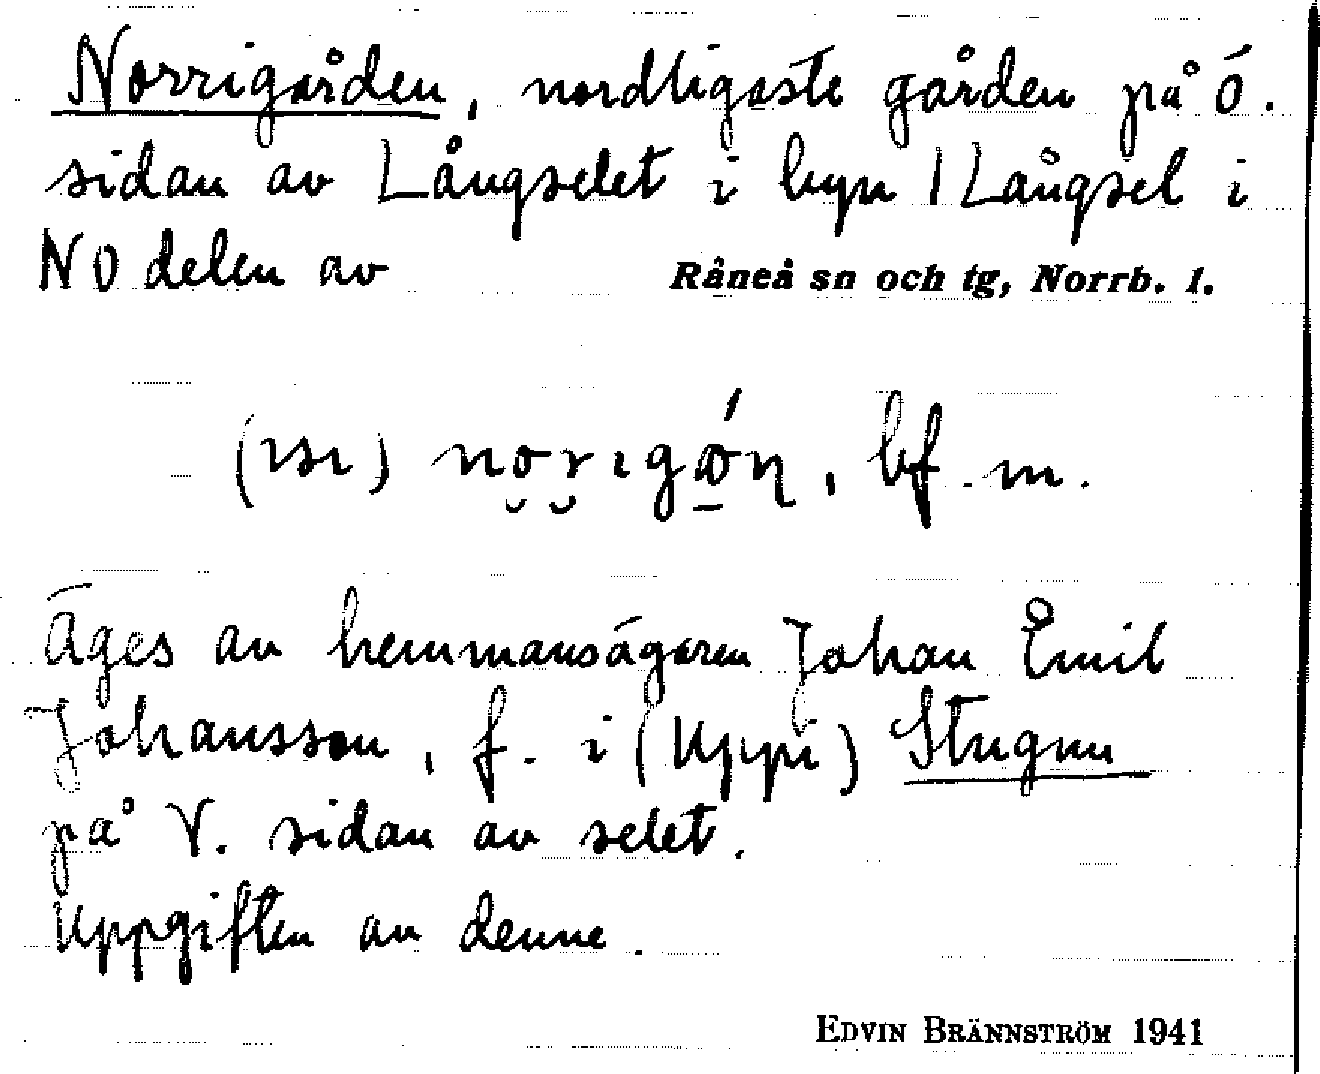 Norrigården, nordligaste gården på Ö.
sidan av Långselet i byn 1 Långsel i
NO delen av Råneå sn och tg, Norrb. l.
(ısı) no̮r̮ıgǿ̠ɳ, bf. m.
Äges av hemmansägaren Johan Emil
Johansson, f. i (Uppi) Stugun
på V. sidan av selet.
Uppgiften av denne.
EDVIN BRÄNNSTRÖM 1941